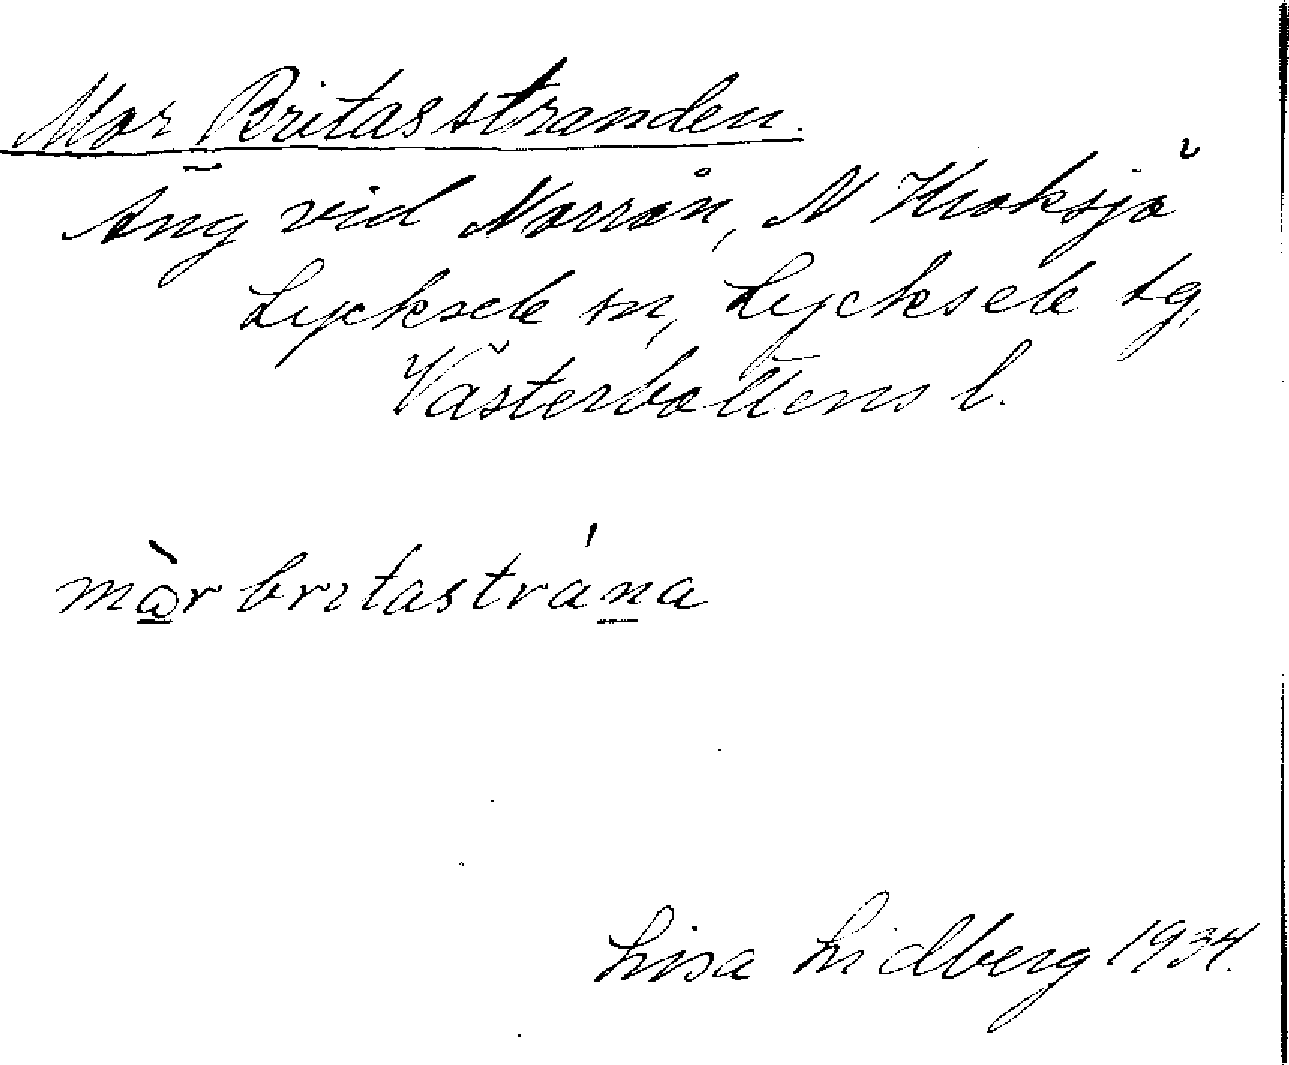 Mor Britasstranden.
Äng vid Norrån, N Kroksjö
Lycksele sn, Lycksele tg,
Västerbottens l.
mòr britastrána
Lisa Lidberg 1934.